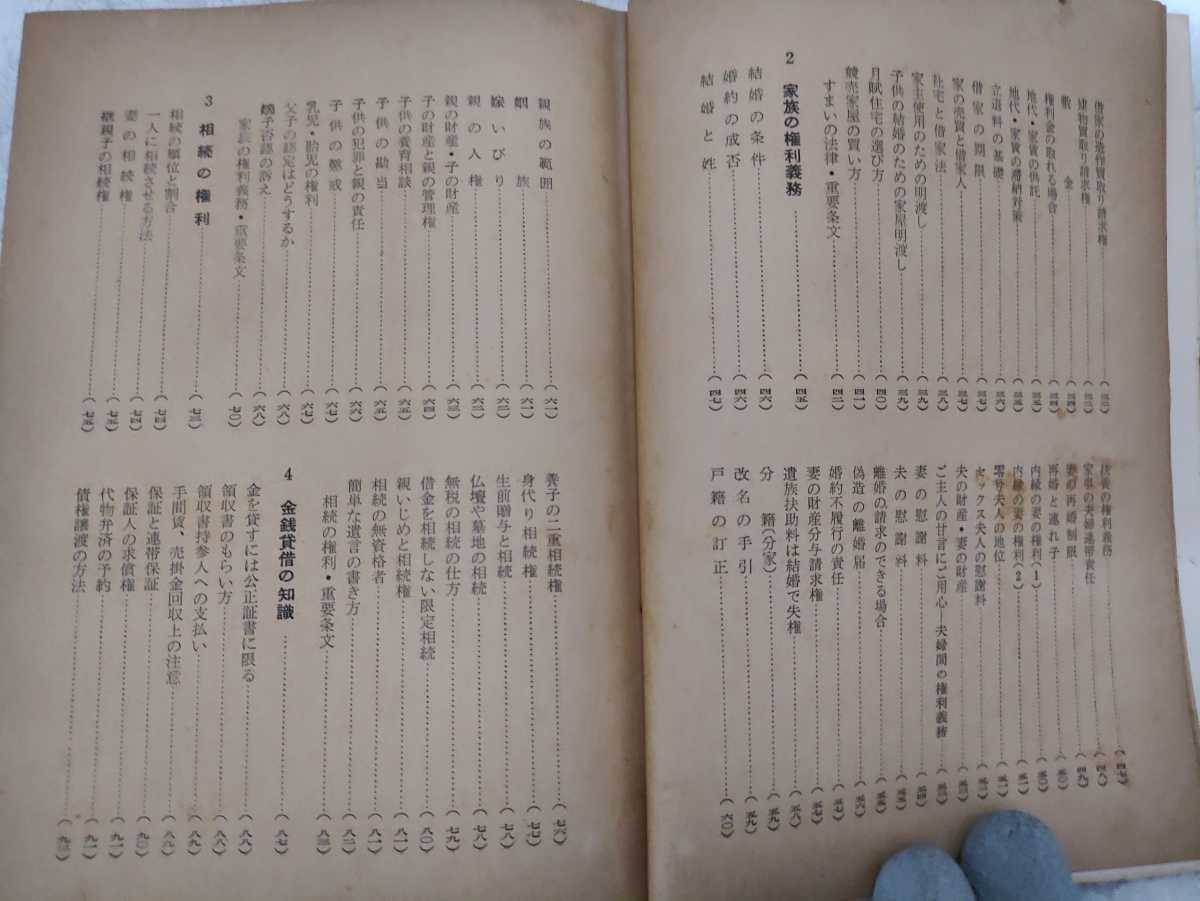 借家の造作買取り請求権…(三三)
建物買取り請求権…(三三)
敷金…(三四)
権利金の取れる場合…(三四)
地代・家賃の供託…(三五)
地代・家賃の滞納対策…(三五)
立退料の基礎…(三六)
借家の期限…(三七)
家の売買と借家人…(三七)
社宅と借家法…(三八)
家主使用のための明渡し…(三九)
子供の結婚のための家屋明渡し…(三九)
月賦住宅の選び方…(四〇)
競売家屋の買い方…(四一)
すまいの法律・重要条文…(四二)
2 家族の権利義務…(四五)
結婚の条件…(四六)
婚約の成否…(四六)
結婚と姓…(四七)
夫妻の権利義務…(四七)
家事の夫婦連帯責任…(四八)
妻の再婚制限…(四九)
再婚と連れ子…(五〇)
内縁の妻の権利(1)…(五〇)
内縁の妻の権利(2)…(五一)
零号夫人の地位…(五一)
セックス夫人の慰謝料…(五二)
夫の財産・妻の財産…(五三)
ご主人の甘言にご用心 夫婦間の権利義務…(五三)
妻の慰謝料…(五四)
夫の慰謝料…(五五)
離婚の請求のできる場合…(五五)
偽造の離婚届…(五六)
婚約不履行の責任…(五七)
妻の財産分与請求権…(五七)
遺族扶助料は結婚で失権…(五八)
分籍(分家)…(五九)
改名の手引…(五九)
戸籍の訂正…(六〇)
親族の範囲…(六一)
姻族…(六一)
嫁いびり…(六二)
親の人権…(六二)
親の財産・子の財産…(六三)
子の財産と親の管理権…(六四)
子供の養育相談…(六五)
子供の勘当…(六五)
子供の犯罪と親の責任…(六六)
子供の懲戒…(六七)
乳児・胎児の権利…(六七)
父子の認定はどうするか…(六八)
嫡子否認の訴え…(六八)
家族の権利義務・重要条文…(七〇)
3 相続の権利…(七三)
相続の順位と割合…(七四)
一人に相続させる方法…(七四)
妻の相続権…(七五)
継親子の相続権…(七五)
養子の二重相続権…(七六)
身代り相続権…(七七)
生前贈与と相続…(七八)
仏壇や墓地の相続…(七八)
無税の相続の仕方…(七九)
借金を相続しない限定相続…(八〇)
親いじめと相続権…(八一)
相続の無資格者…(八一)
簡単な遺言の書き方…(八二)
相続の権利・重要条文…(八三)
4 金銭貸借の知識…(八七)
金を貸すには公正証書に限る…(八八)
領収書のもらい方…(八八)
領収書持参人への支払い…(八九)
手間賃、売掛金回収上の注意…(八九)
保証と連帯保証…(九〇)
保証人の求償権…(九一)
代物弁済の予約…(九一)
債権譲渡の方法…(九二)